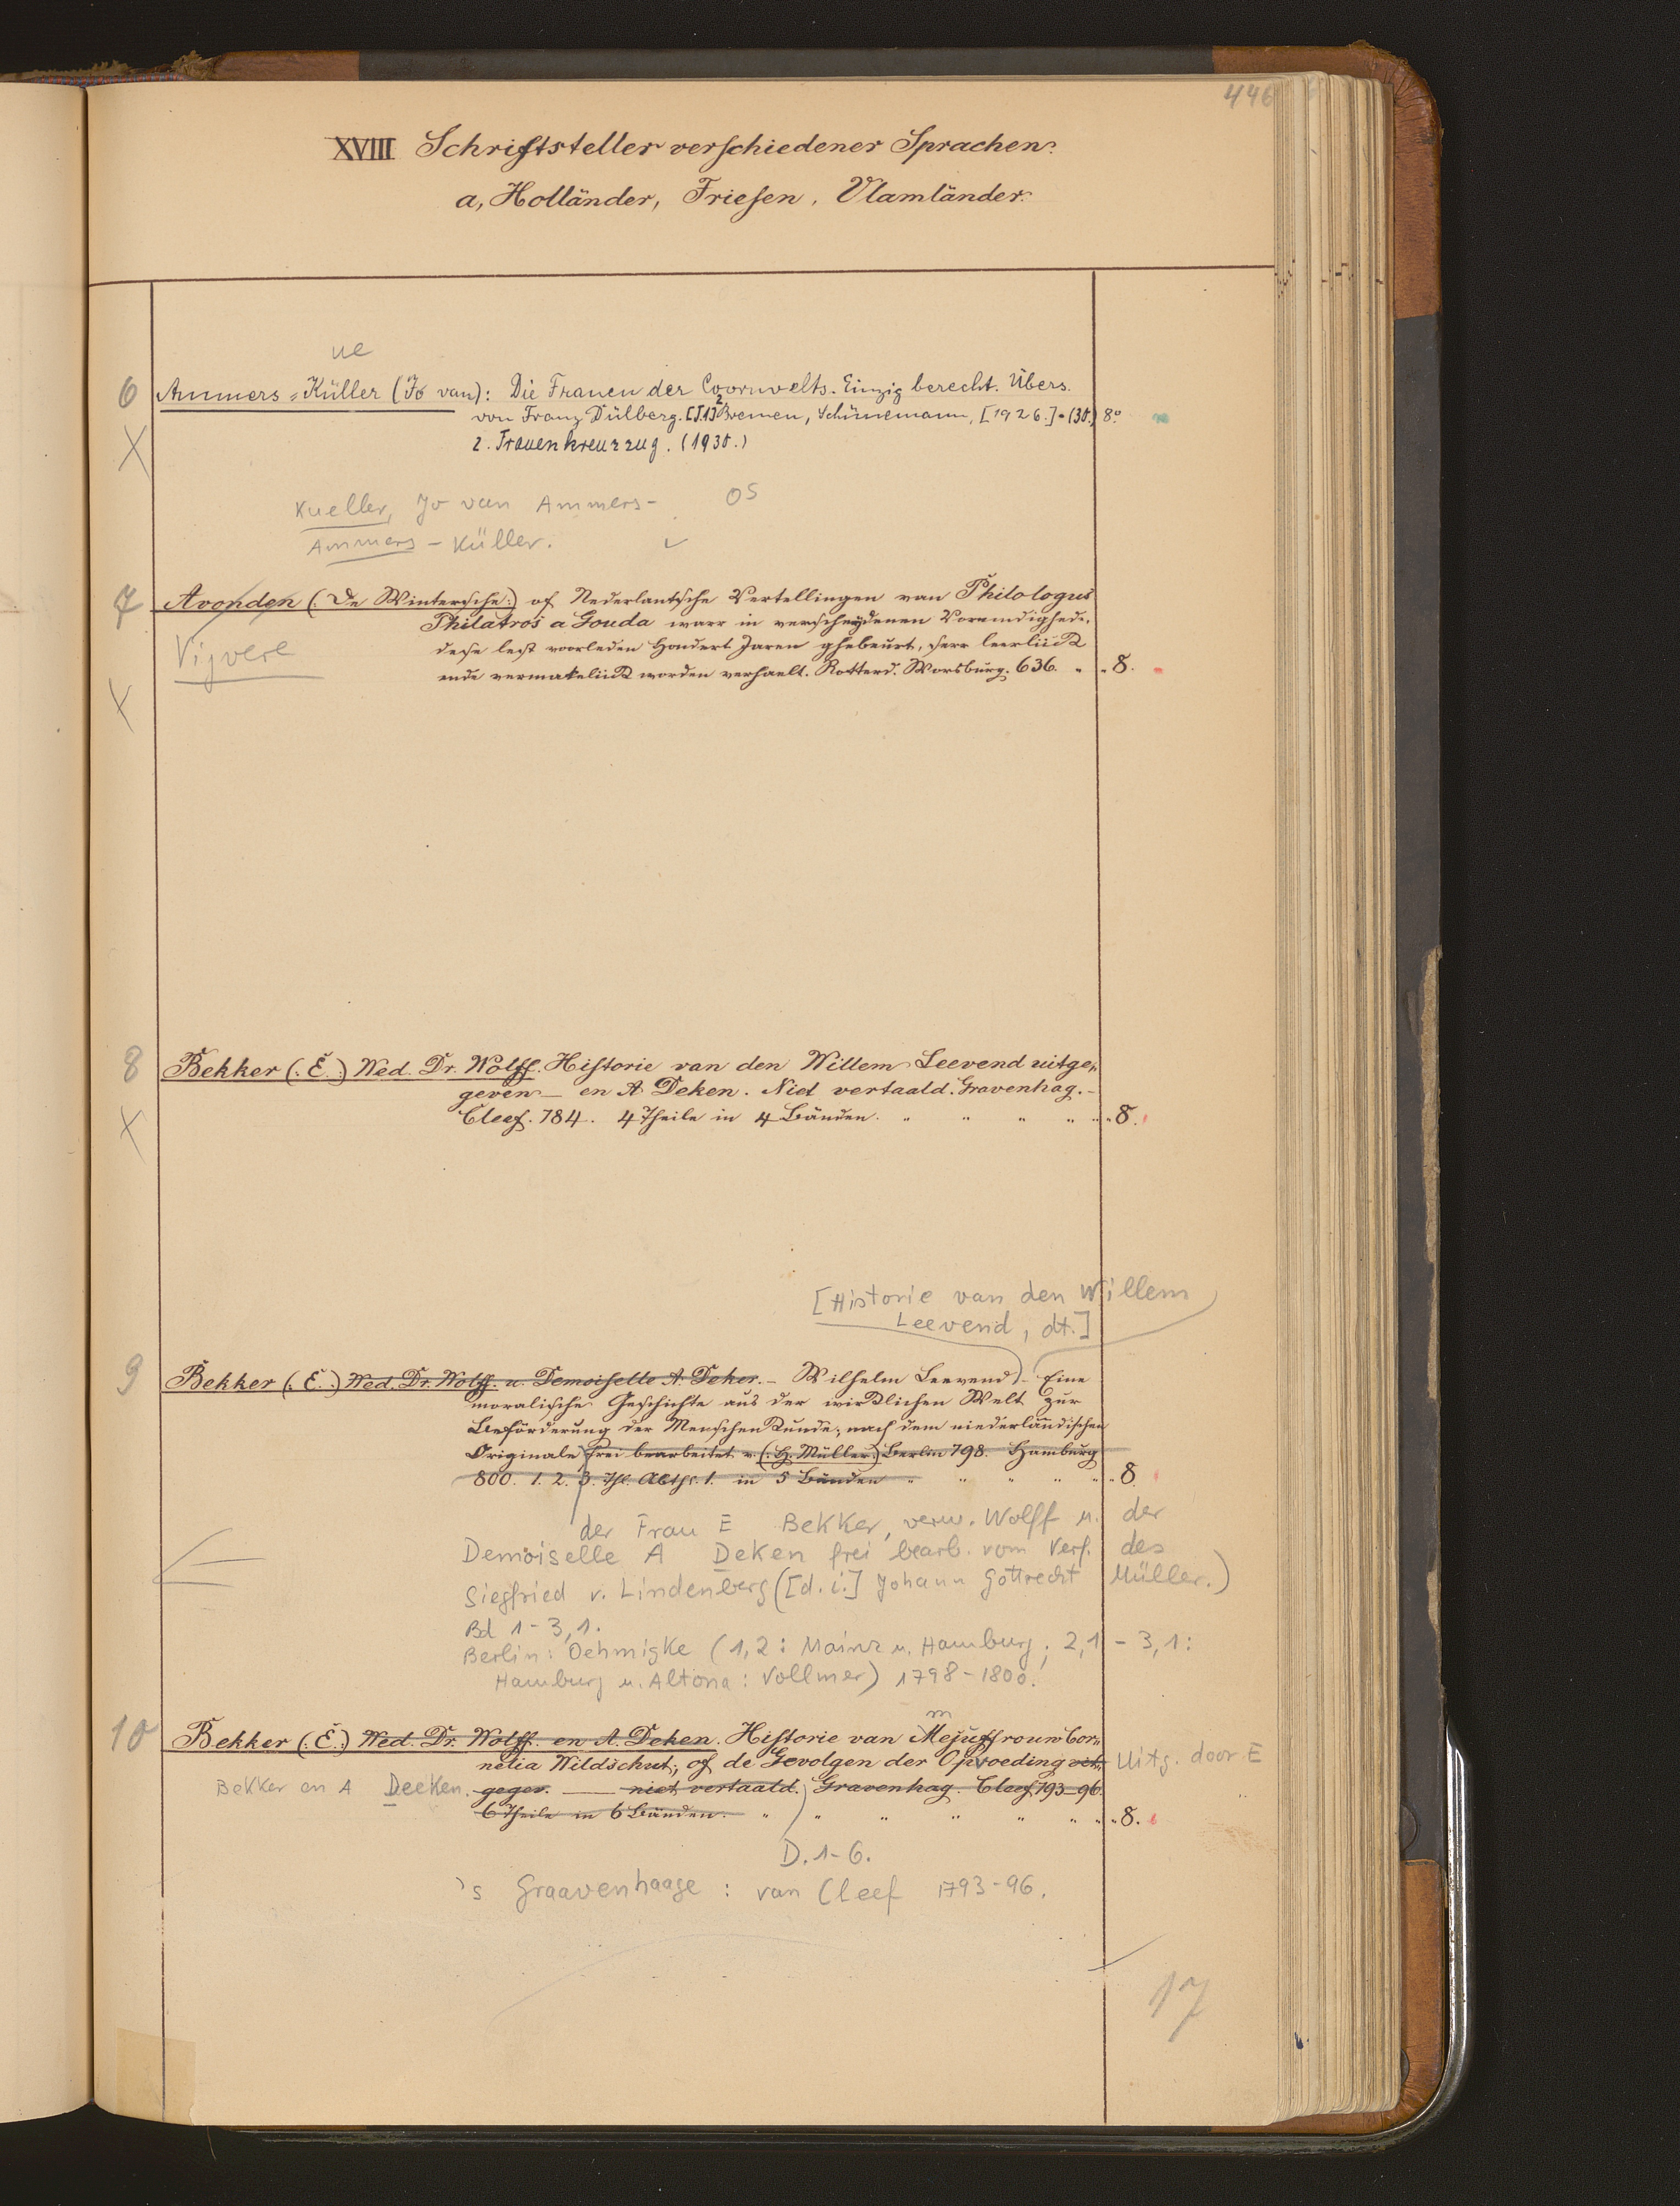 446
XVIII Schriftsteller verschiedener Sprachen.
a, Holländer, Friesen, Vlamländer.
ue
6 Ammers=Küller (Jo van): Die Frauen der Coornvelts. Einzig berecht. Übers.
von Franz Dülberg. [1.]2 Bremen, Schünemann, [1926.]-(30.) 8°.
2. Frauenkreuzzug. (1930.)
X
Kueller, Jo van Ammers- OS
Ammers-Küller.
7 Avonden (: De Wintersche:) of Nederlantsche Vertellingen van Philologus
Philatros a Gouda waer in verscheydenen Vorendighede,
Vijvere
dese lest voorleden Hondert Jaren ghebeurt, seer leerlijck
ende vermakelijck worden verhaelt. Rotterd. Worsburg. 636. " " 8.
X
8 Bekker (: E.:) Wed. Dr. Wolff. Historie van den Willem Leevend uitge,,
geven — en A. Deken. Niet vertaald. Gravenhag. -
Cleef. 784. 4 Theile in 4 Bänden. " " " " " 8.
X
[Historie van den Willem
Leevend, dt.]
9 Bekker (: E.:) Wed. Dr. Wolff. u. Demoiselle A. Deker. - Wilhelm Leevend) - Eine
moralische Geschichte aus der wircklichen Welt zur
Beförderung der Menschenkunde; nach dem niederländischen
Originale frei bearbeitet v. (: H. Müller.) Berlin 798. Hamburg
800. 1. 2. 3. Thl. Abth. 1. in 5 Bänden " " " " " 8
der Frau E Bekker, verw. Wolff u. der
Demoiselle A Deken frei bearb. vom Verf. des
Siegfried v. Lindenberg ([d. i.] Johann Gottwerth Müller.)
Bd 1-3,1.
Berlin: Oehmigke (1,2: Mainz u. Hamburg; 2,1 - 3,1:
Hamburg u. Altona: Vollmer) 1798-1800.
m
10 Bekker (: E.:) Wed. Dr. Wolff. en A. Deken. Historie van Mejuffrouw Cor,,
nelia Wildschut; of de Gevolgen der Opvoeding uit,, Uitg. door E
Bekker en A Deeken. gegev. — niet vertaald. Gravenhag. Cleef 793-96.
6 Theile in 6 Bänden. " " " " " " " 8.
D. 1-6.
's Graavenhaage: van Cleef 1793-96.
17